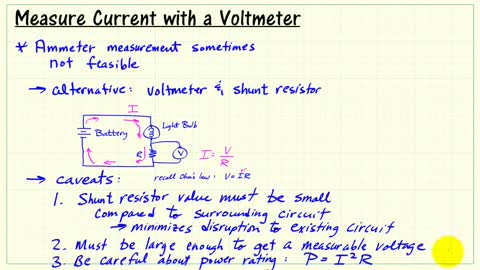 Measure Current with a Voltmeter
* Ammeter measurement sometimes
not feasible
→ alternative: voltmeter & shunt resistor
I
Battery
Light Bulb
R
V
I = V/R
recall Ohm's law: V = IR
→ caveats:
1. Shunt resistor value must be small
compared to surrounding circuit
→ minimizes disruption to existing circuit
2. Must be large enough to get a measurable voltage
3. Be careful about power rating: P = I²R